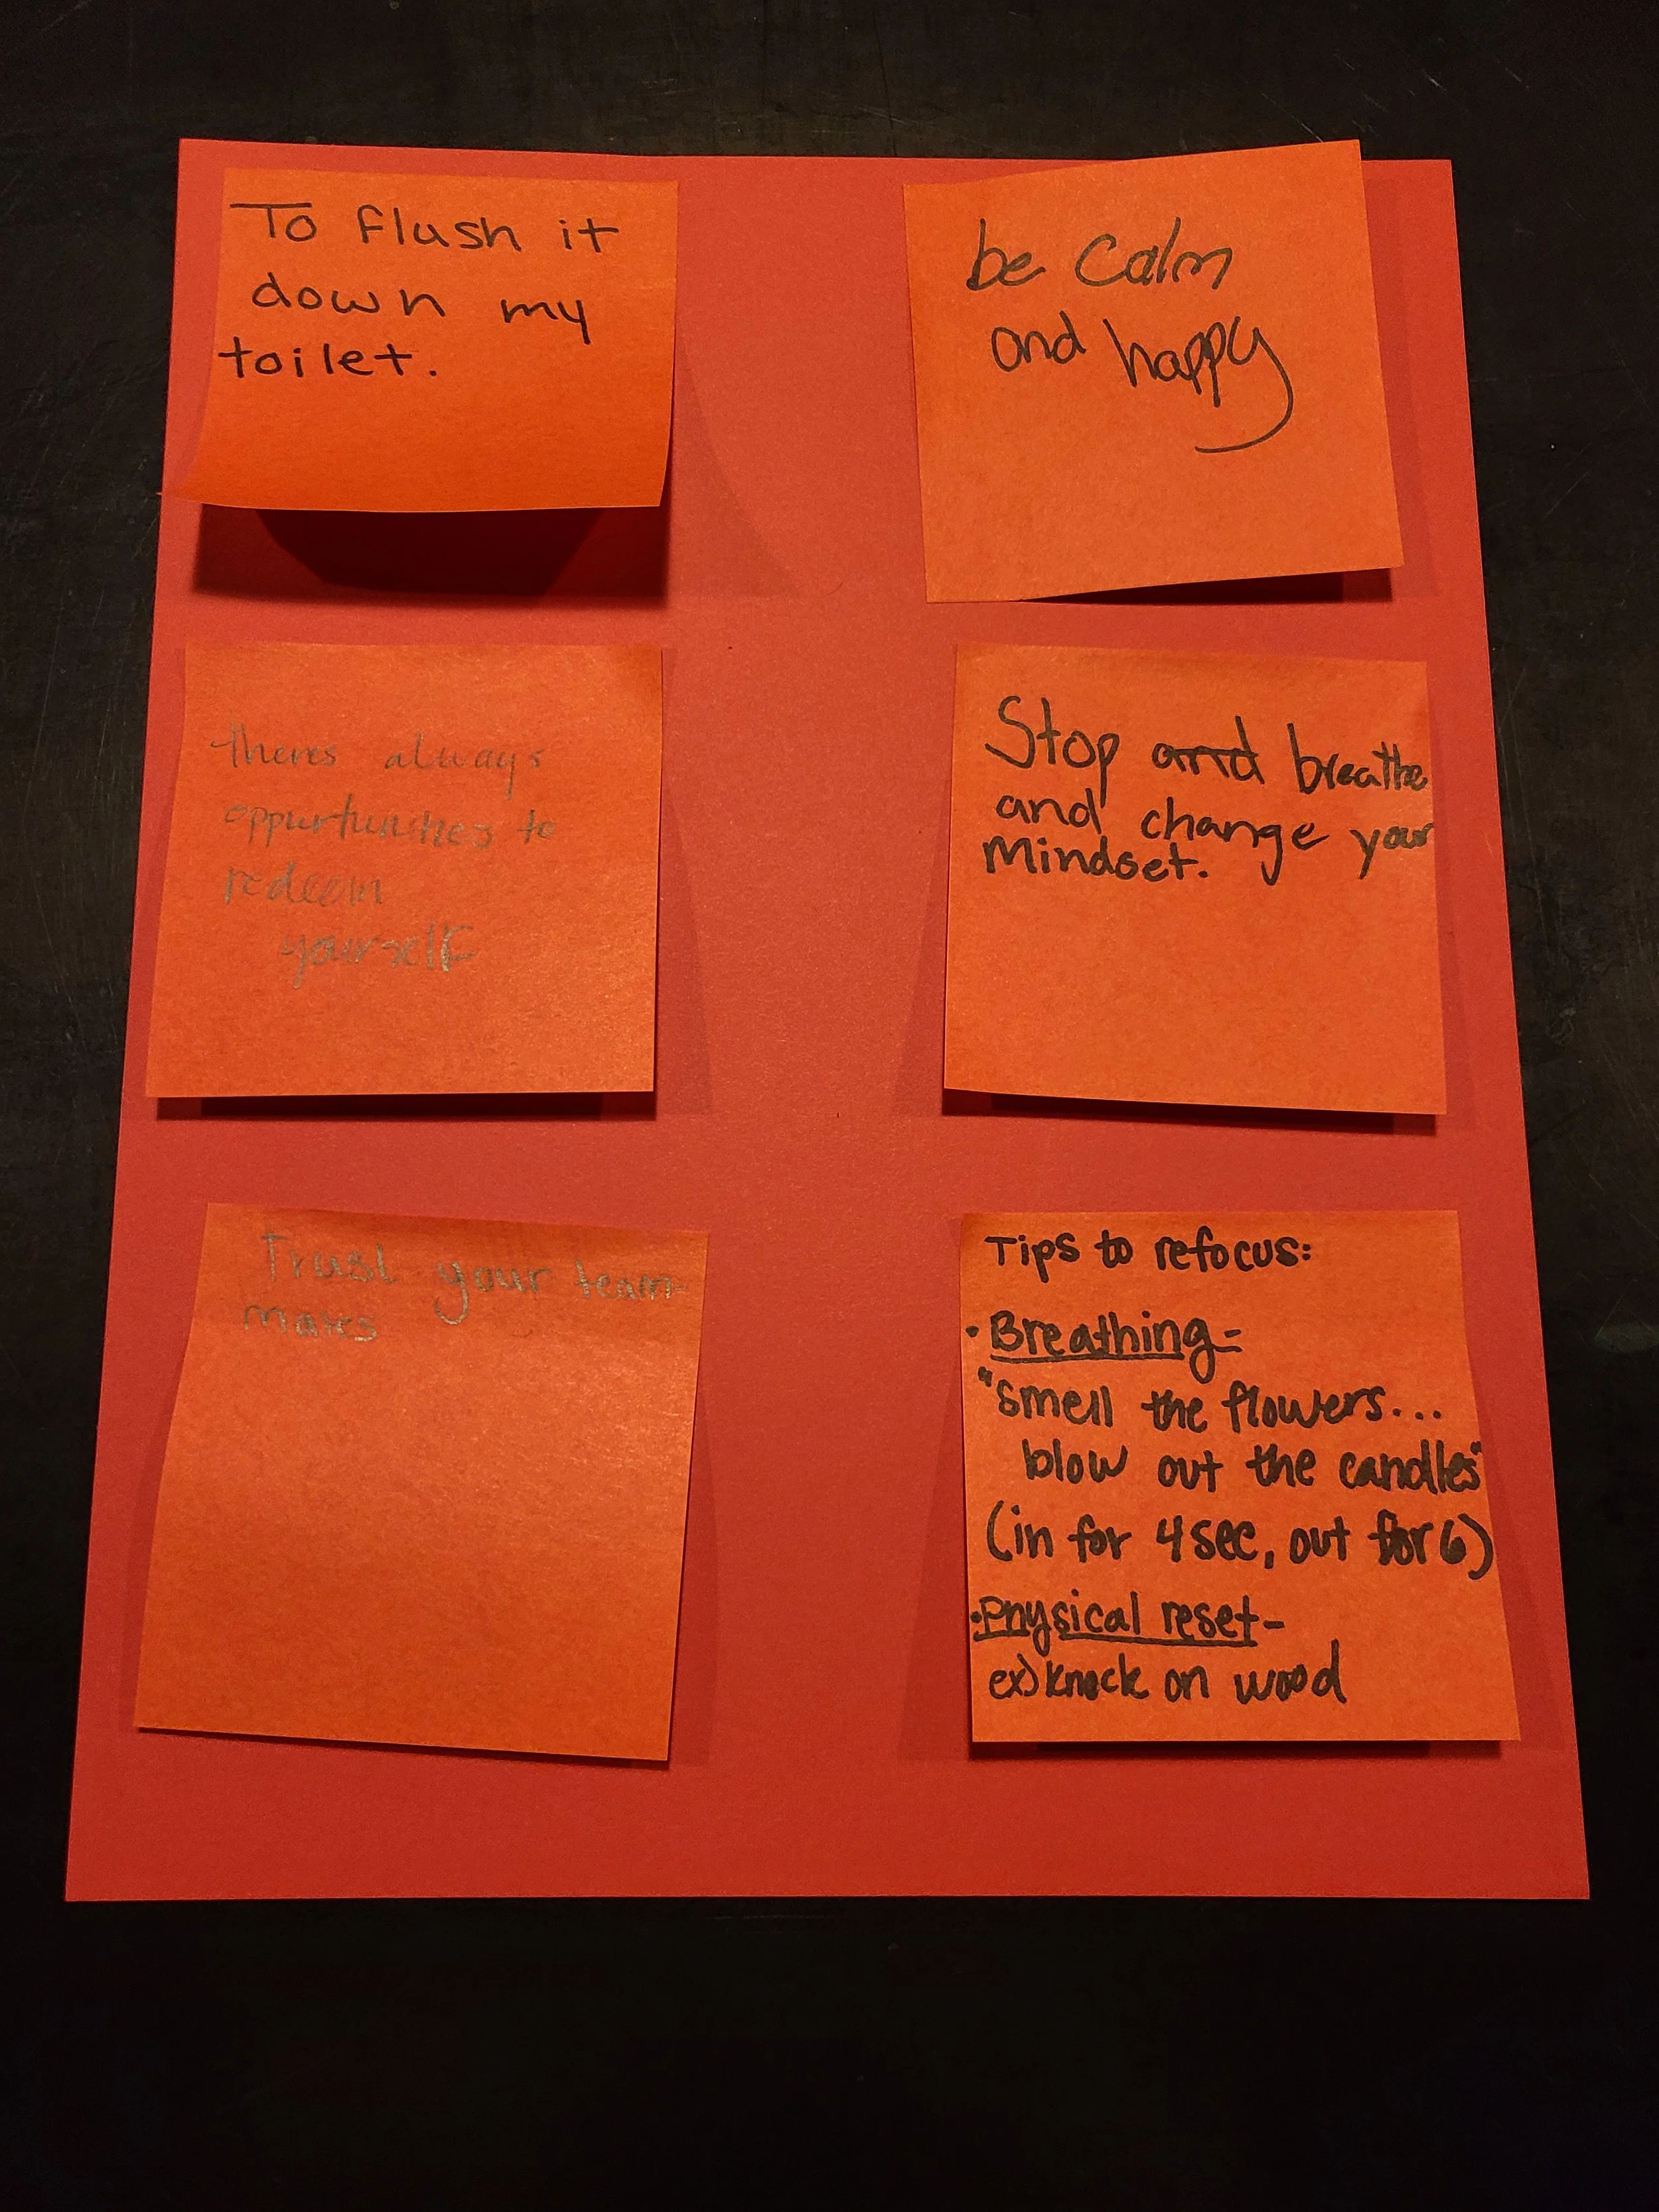 To flush it
down my
toilet.
be calm
and happy
theres always
oppurtunities to
redeem
yourself
Stop and breathe
and change your
Mindset.
Trust your team-
mates
Tips to refocus:
• Breathing-
"smell the flowers...
blow out the candles"
(in for 4 sec, out for 6)
• Physical reset-
ex) knock on wood